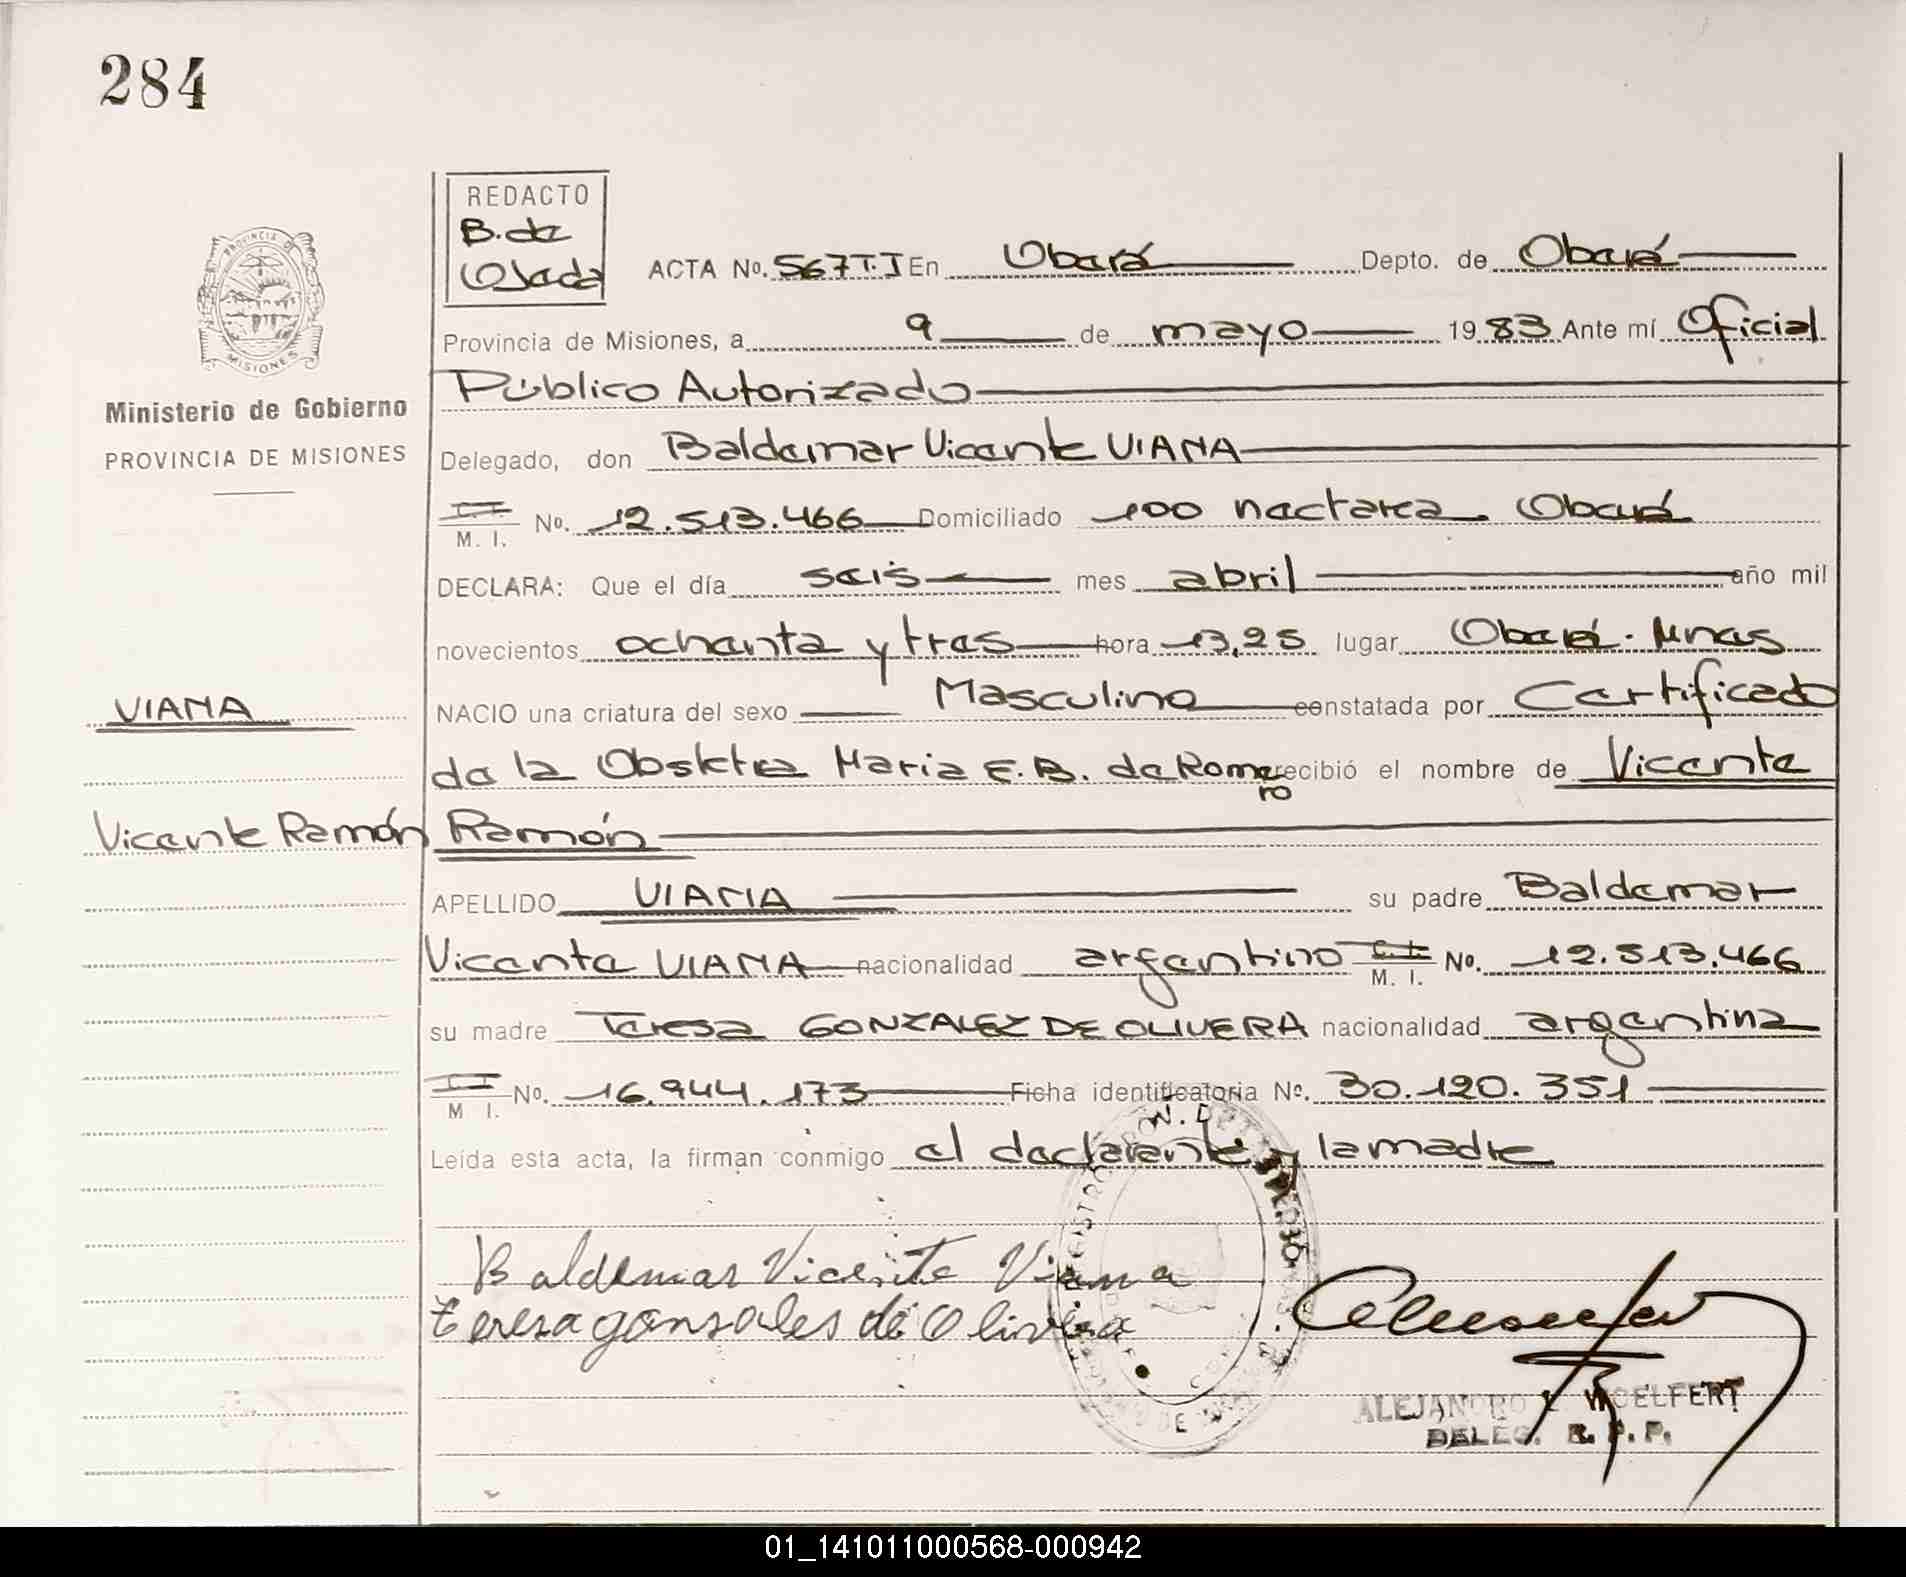 284
REDACTO
B. de
Ojeda
ACTA No. 567 T.I En Oberá Depto. de Oberá
Provincia de Misiones, a 9 de mayo 1983 Ante mí Oficial
Público Autorizado
PROVINCIA DE
MISIONES
Ministerio de Gobierno
PROVINCIA DE MISIONES
Delegado, don Baldemar Vicente VIANA
M. I. No. 12.513.466 Domiciliado 100 hectarea. Oberá
DECLARA: Que el día seis mes abril año mil
novecientos ochenta y tres hora 13,25 lugar Oberá. Mnes
VIANA
NACIO una criatura del sexo Masculino constatada por Certificado
de la Obstetra Maria E. B. de Romero recibió el nombre de Vicente
Vicente Ramón
Ramón
APELLIDO VIANA su padre Baldemar
Vicente VIANA nacionalidad argentino M. I. No. 12.513.466
su madre Teresa GONZALEZ DE OLIVERA nacionalidad argentina
M I. No. 16.944.173 Ficha identificatoria No. 30.120.351
Leída esta acta, la firman conmigo el declarante y la madre
Baldemar Vicente Viana
teresa gonsales de Olivera
ALEJANDRO L. WOELFERT
DELEG. R. P. P.
01_141011000568-000942